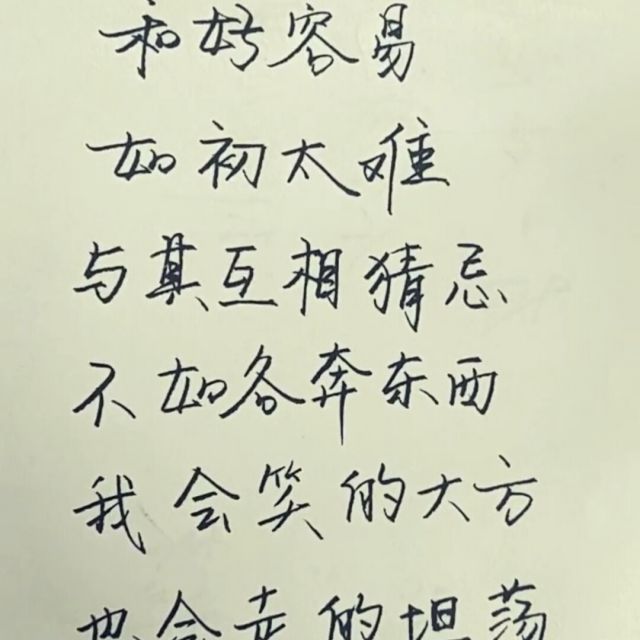 和好容易
如初太难
与其互相猜忌
不如各奔东西
我会笑的大方
也会走的坦荡